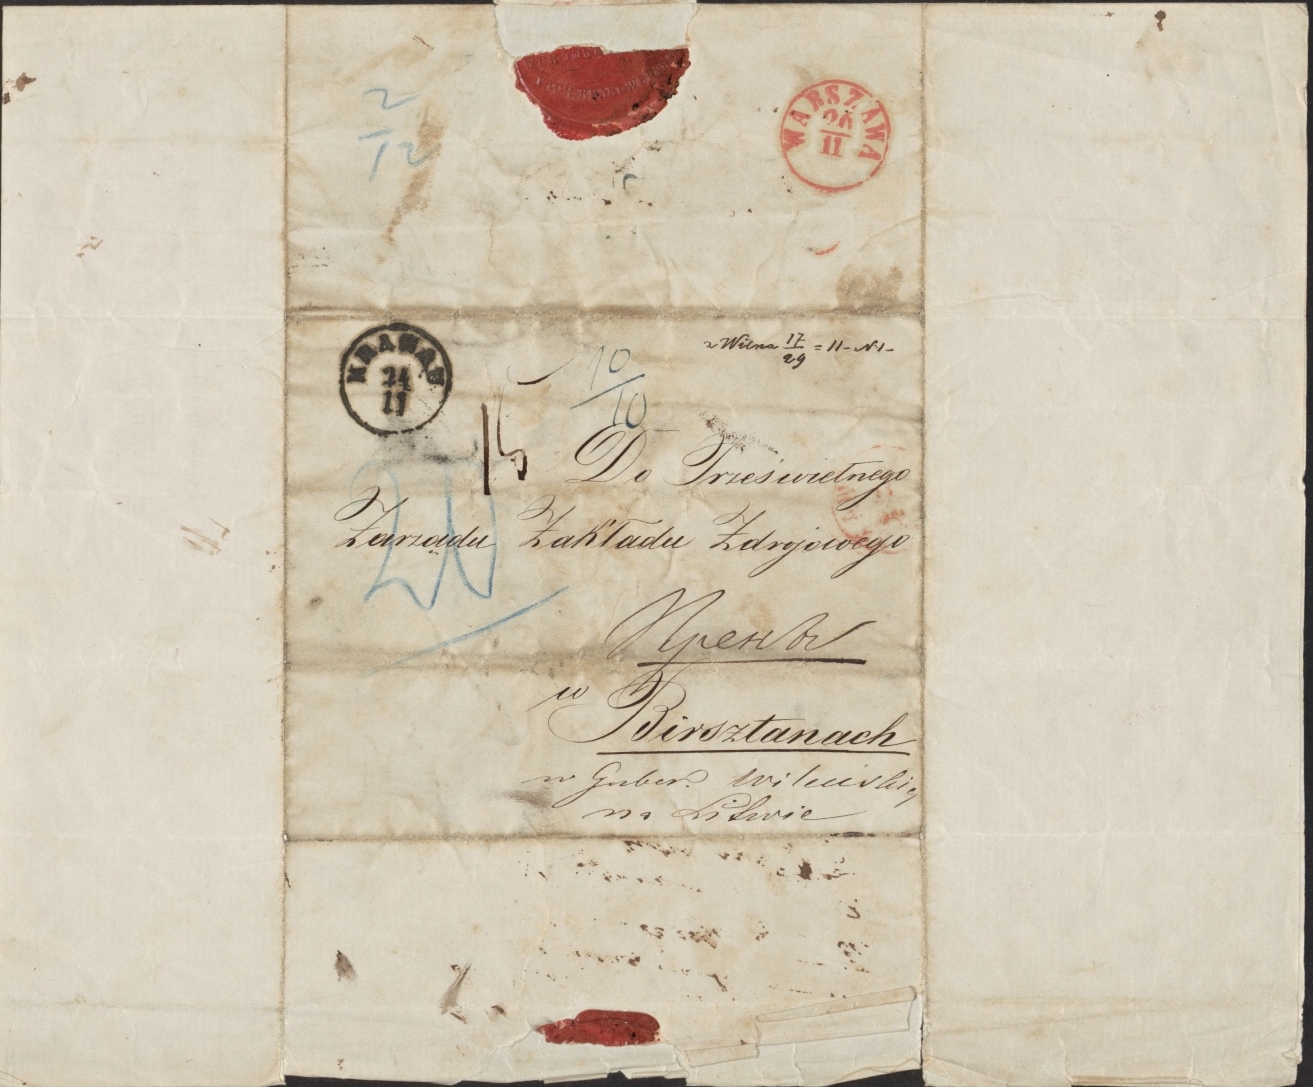 2
12
WARSZAWA
26
11
KRAKAU
24
11
z Wilna 17/29 = 11 - N1-
10
10
15
Do Prześwietnego
Zarządu Zakładu Zdrojowego
20
Прены
w
Birsztanach
w Guber. Wileńskiej
na Litwie